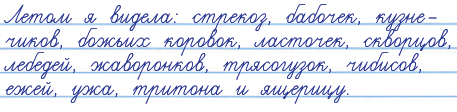 Летом я видела: стрекоз, бабочек, кузне-
чиков, божьих коровок, ласточек, скворцов,
лебедей, жаворонков, трясогузок, чибисов,
ежей, ужа, тритона и ящерицу.